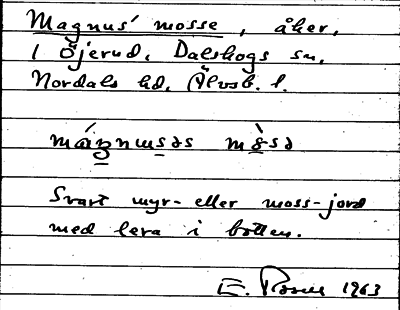 Magnus' mosse, åker,
i Öjerud, Dalskogs sn,
Nordals hd, Älvsb. l.
Svart myr- eller moss-jord
med lera i botten.
E. 1963